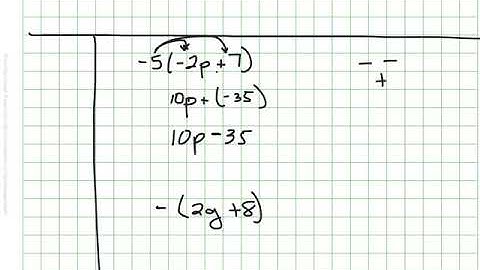 -5(-2p+7)
- -
+
10p+(-35)
10p-35
-(2g+8)